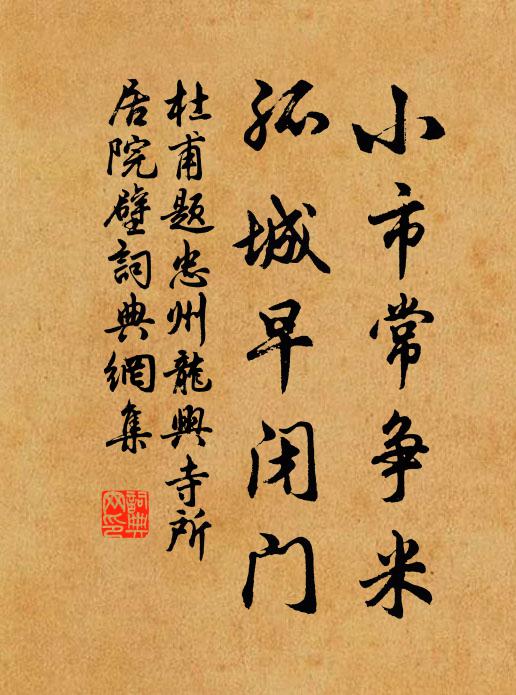 小市常争米
孤城早闭门
杜甫题忠州龍興寺所
居院壁詞典網集
詞典
网印